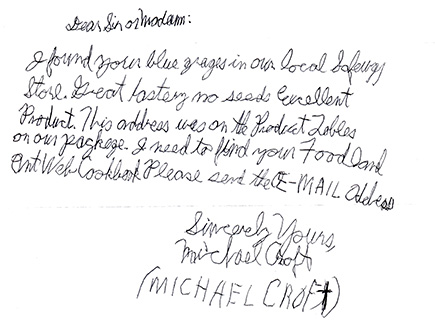 Dear Sir or Madam:
I found your blue grapes in our local Safeway
Store. Great tasteing no seeds Excellent
Product. This address was on the Product Lables
on our package. I need to find your Food and
Ent Web Cookbook Please send the E-MAIL address
Sincerely Yours,
Michael Croft
(MICHAEL CROFt)